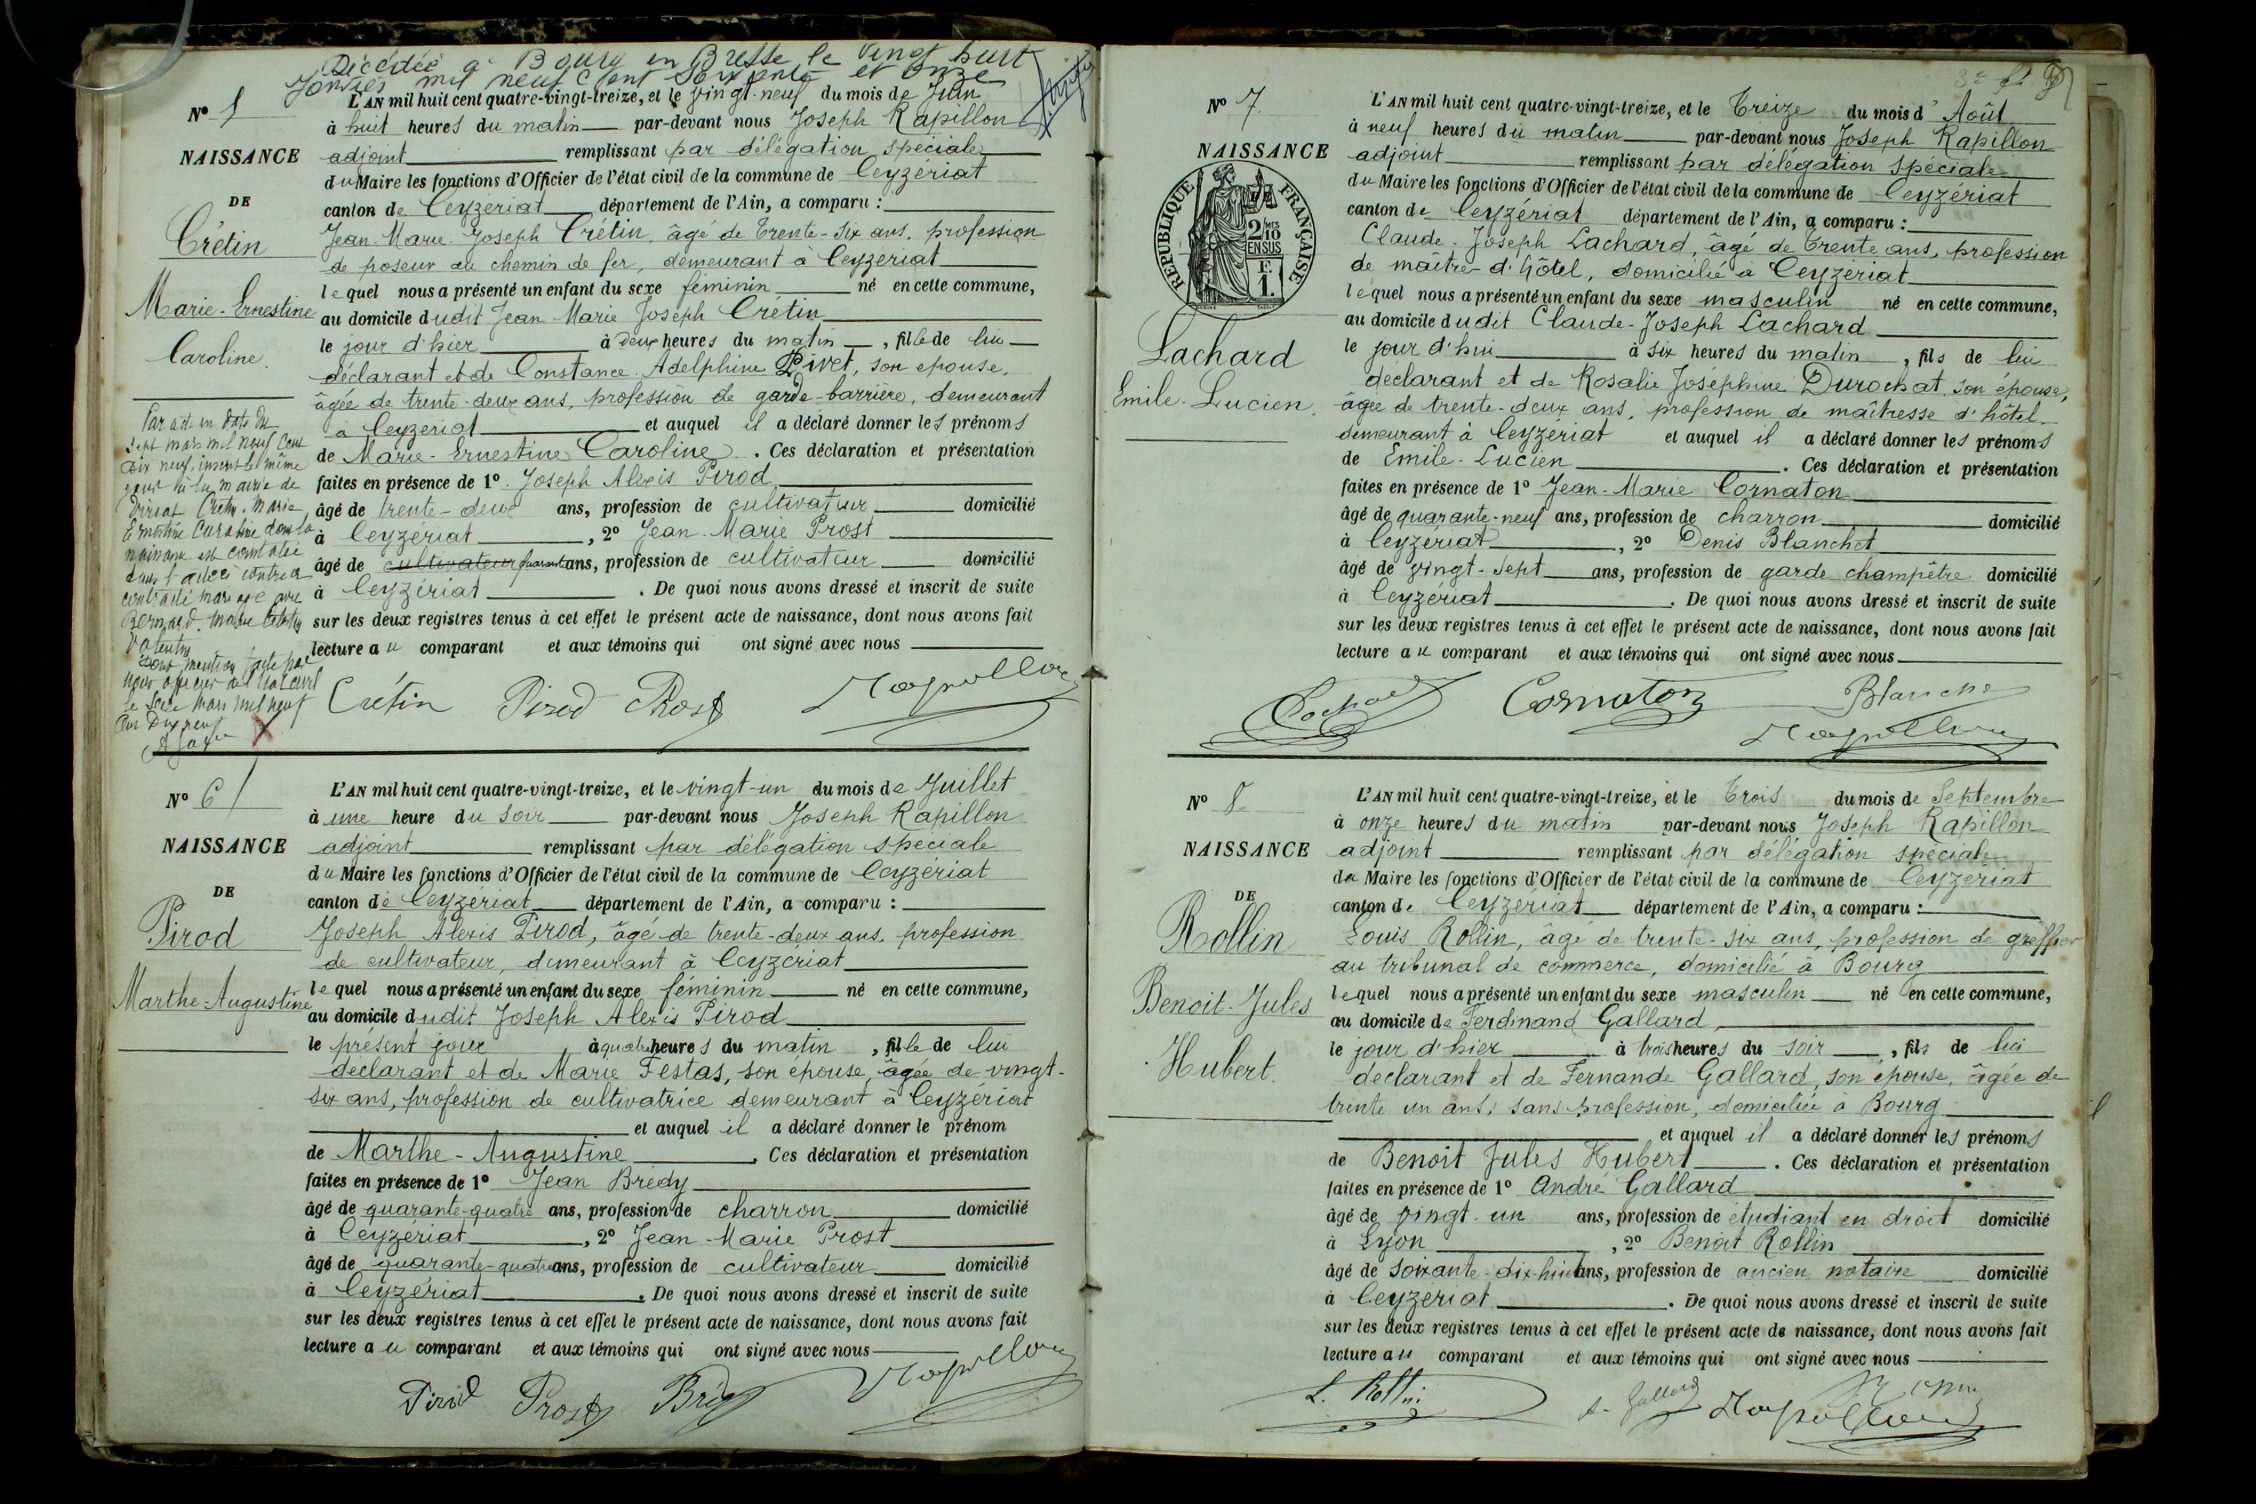 Décédée à Bourg en Bresse le vingt huit
Janvier mil neuf cent soixante et onze
N° 5
NAISSANCE
DE
Crétin
Marie-Ernestine
Caroline.
Par acte en date du
sept mars mil neuf cent
dix neuf, inscrit le même
jour à la mairie de
Crétin Marie
Ernestine Caroline dont la
naissance est constatée
dans l'acte ci contre a
contracté mariage avec
Bernard, Marie
Valentin
Dont mention faite par
nous officier de l'état civil
le seize Mars mil neuf
cent Dix neuf
L'AN mil huit cent quatre-vingt-treize, et le vingt-neuf du mois de Juin
à huit heures du matin par-devant nous Joseph Rapillon
adjoint remplissant par délégation spéciale
du Maire les fonctions d'Officier de l'état civil de la commune de Ceyzériat
canton de Ceyzériat département de l'Ain, a comparu :
Jean-Marie-Joseph Crétin, âgé de trente-six ans, profession
de poseur au chemin de fer, demeurant à Ceyzériat
lequel nous a présenté un enfant du sexe féminin né en cette commune,
au domicile dudit Jean Marie Joseph Crétin
le jour d'hier à deux heures du matin, fille de lui
déclarant et de Constance Adelphine Pivet, son épouse,
âgée de trente-deux ans, profession de garde-barrière, demeurant
à Ceyzériat et auquel il a déclaré donner les prénoms
de Marie-Ernestine Caroline. Ces déclaration et présentation
faites en présence de 1° Joseph Alexis Pirod
âgé de trente-deux ans, profession de cultivateur domicilié
à Ceyzériat, 2° Jean-Marie Prost
âgé de cultivateur quarante ans, profession de cultivateur domicilié
à Ceyzériat. De quoi nous avons dressé et inscrit de suite
sur les deux registres tenus à cet effet le présent acte de naissance, dont nous avons fait
lecture au comparant et aux témoins qui ont signé avec nous
Crétin Pirod Prost Rapillon
N° 6
NAISSANCE
DE
Pirod
Marthe-Augustine
L'AN mil huit cent quatre-vingt-treize, et le vingt-un du mois de Juillet
à une heure du soir par-devant nous Joseph Rapillon
adjoint remplissant par délégation spéciale
du Maire les fonctions d'Officier de l'état civil de la commune de Ceyzériat
canton de Ceyzériat département de l'Ain, a comparu :
Joseph Alexis Pirod, âgé de trente-deux ans, profession
de cultivateur, demeurant à Ceyzériat
lequel nous a présenté un enfant du sexe féminin né en cette commune,
au domicile dudit Joseph Alexis Pirod
le présent jour à quatre heures du matin, fille de lui
déclarant et de Marie Festas, son épouse, âgée de vingt-
six ans, profession de cultivatrice demeurant à Ceyzériat
et auquel il a déclaré donner le prénom
de Marthe-Augustine. Ces déclaration et présentation
faites en présence de 1° Jean Brédy
âgé de quarante-quatre ans, profession de charron domicilié
à Ceyzériat, 2° Jean-Marie Prost
âgé de quarante-quatre ans, profession de cultivateur domicilié
à Ceyzériat. De quoi nous avons dressé et inscrit de suite
sur les deux registres tenus à cet effet le présent acte de naissance, dont nous avons fait
lecture au comparant et aux témoins qui ont signé avec nous
Pirod Prost Brédy Rapillon
N° 7
NAISSANCE
RÉPUBLIQUE FRANÇAISE
2/10
EN SUS
F.
1.
Lachard
Emile-Lucien.
L'AN mil huit cent quatre-vingt-treize, et le treize du mois d'Août
à neuf heures du matin par-devant nous Joseph Rapillon
adjoint remplissant par délégation spéciale
du Maire les fonctions d'Officier de l'état civil de la commune de Ceyzériat
canton de Ceyzériat département de l'Ain, a comparu :
Claude-Joseph Lachard, âgé de trente ans, profession
de maître d'hôtel, domicilié à Ceyzériat
lequel nous a présenté un enfant du sexe masculin né en cette commune,
au domicile dudit Claude-Joseph Lachard
le jour d'hui à six heures du matin, fils de lui
déclarant et de Rosalie Joséphine Durochat, son épouse,
âgée de trente-deux ans, profession de maîtresse d'hôtel
demeurant à Ceyzériat et auquel il a déclaré donner les prénoms
de Emile-Lucien. Ces déclaration et présentation
faites en présence de 1° Jean-Marie Cornaton
âgé de quarante-neuf ans, profession de charron domicilié
à Ceyzériat, 2° Denis Blanchet
âgé de vingt-sept ans, profession de garde champêtre domicilié
à Ceyzériat. De quoi nous avons dressé et inscrit de suite
sur les deux registres tenus à cet effet le présent acte de naissance, dont nous avons fait
lecture au comparant et aux témoins qui ont signé avec nous
Lachard Cornaton Blanchet
Rapillon
N° 8
NAISSANCE
DE
Rollin
Benoit-Jules
Hubert.
L'AN mil huit cent quatre-vingt-treize, et le trois du mois de Septembre
à onze heures du matin par-devant nous Joseph Rapillon
adjoint remplissant par délégation spéciale
du Maire les fonctions d'Officier de l'état civil de la commune de Ceyzériat
canton de Ceyzériat département de l'Ain, a comparu :
Louis Rollin, âgé de trente-six ans, profession de greffier
au tribunal de commerce, domicilié à Bourg
lequel nous a présenté un enfant du sexe masculin né en cette commune,
au domicile de Ferdinand Gallard,
le jour d'hier à trois heures du soir, fils de lui
déclarant et de Fernande Gallard, son épouse, âgée de
trente un ans, sans profession, domiciliée à Bourg
et auquel il a déclaré donner les prénoms
de Benoit Jules Hubert. Ces déclaration et présentation
faites en présence de 1° André Gallard
âgé de vingt-un ans, profession de étudiant en droit domicilié
à Lyon, 2° Benoit Rollin
âgé de soixante-dix-huit ans, profession de ancien notaire domicilié
à Ceyzériat. De quoi nous avons dressé et inscrit de suite
sur les deux registres tenus à cet effet le présent acte de naissance, dont nous avons fait
lecture au comparant et aux témoins qui ont signé avec nous
L. Rollin A. Gallard Rapillon